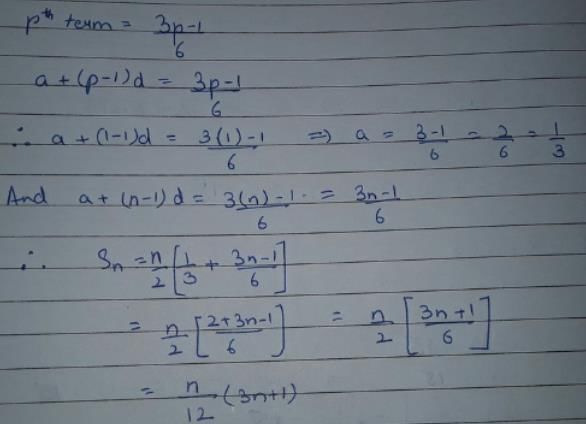 pᵗʰ term = (3p-1)/6
a + (p-1)d = (3p-1)/6
∴ a + (1-1)d = (3(1)-1)/6 ⇒ a = (3-1)/6 = 2/6 = 1/3
And a + (n-1)d = (3(n)-1)/6 = (3n-1)/6
∴ Sn = n/2 [1/3 + (3n-1)/6]
= n/2 [(2+3n-1)/6] = n/2 [(3n+1)/6]
= n/12 (3n+1)